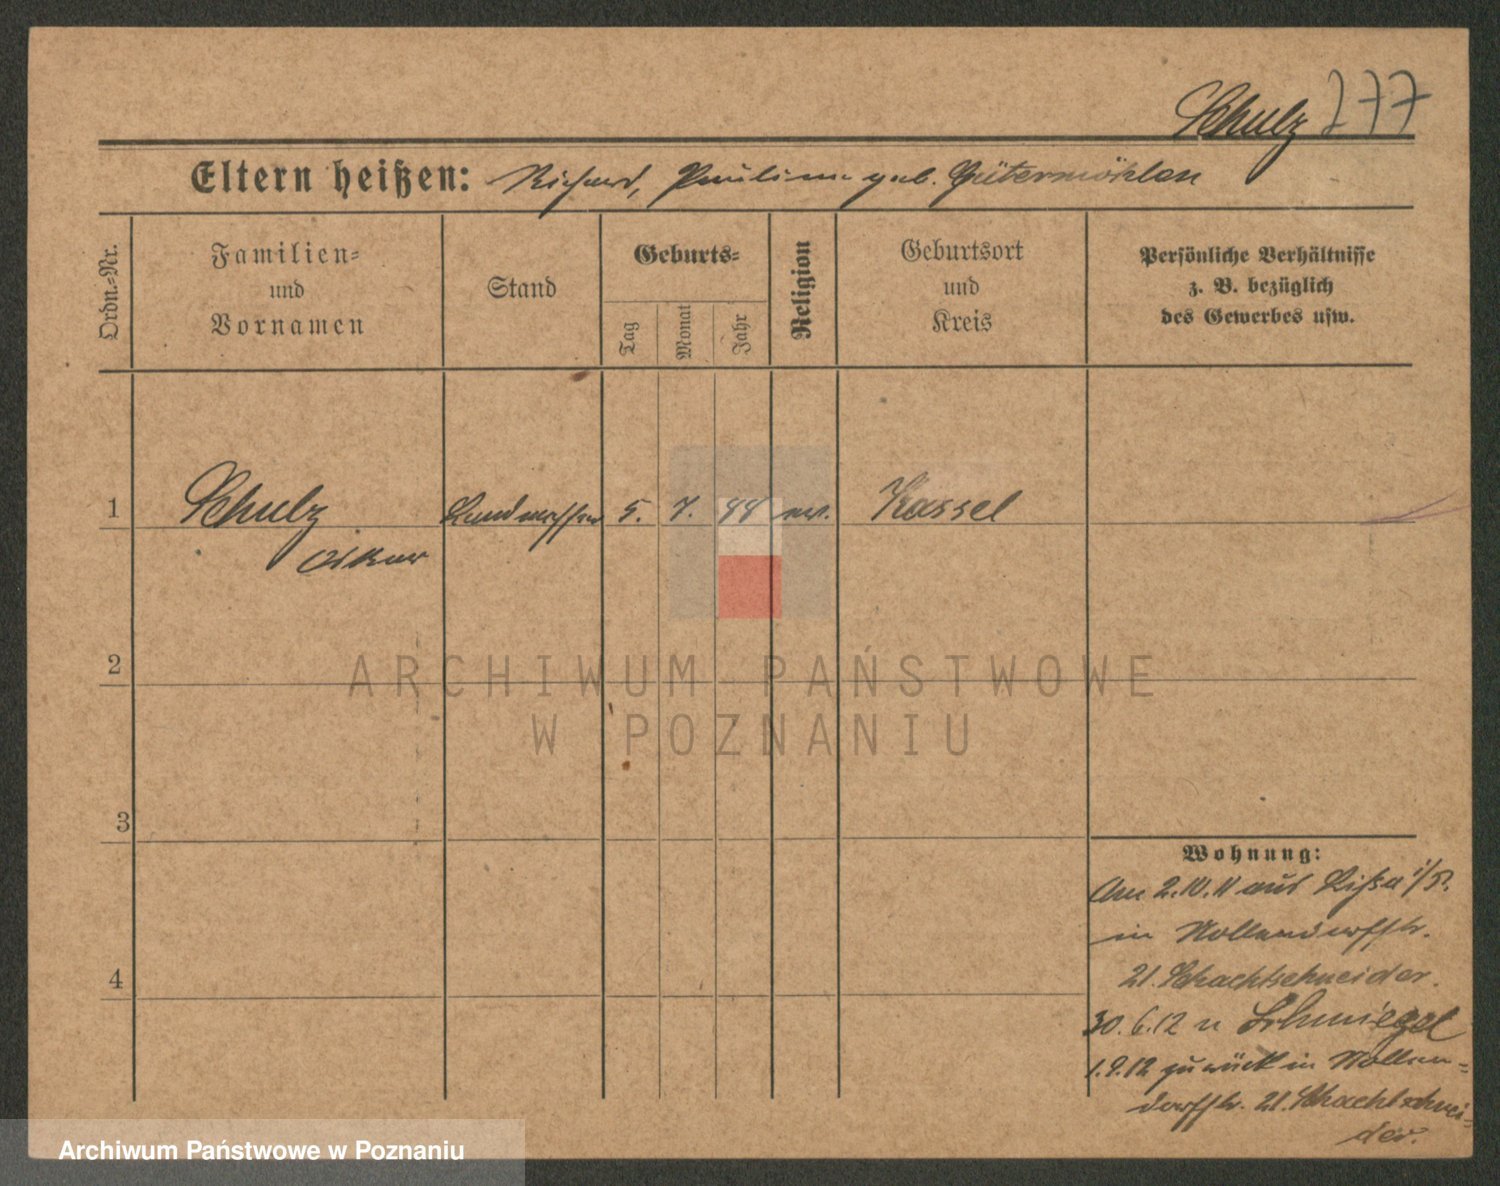 Schulz 277
Eltern heißen: Richard, Pauline geb. Gütermöhlen
Ordn.-Nr.
Familien-
und
Vornamen
Stand
Geburts-
Tag
Monat
Jahr
Religion
Geburtsort
und
Kreis
Persönliche Verhältnisse
z. B. bezüglich
des Gewerbes usw.
1 Schulz Landmesser 5. 7. 88 ev. Kassel
Oskar
2
ARCHIWUM PAŃSTWOWE
W POZNANIU
3
4
Wohnung:
Am 2.10.11 aus Lissa i/P.
in Nollendorffstr.
21. Schachtschneider.
30.6.12 n Schmiegel
1.9.12 zurück in Nollen-
dorffstr. 21. Schachtschnei-
der.
Archiwum Państwowe w Poznaniu